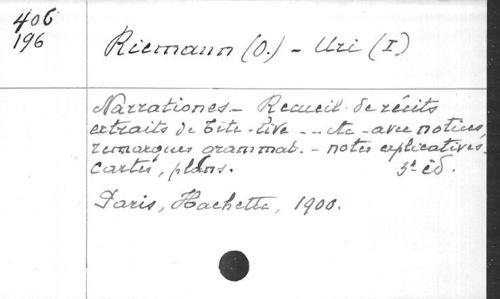 406
196
Riemann (O.) - Uri (I)
Narrationes - Recueil de récits
extraits de Tite-Live --- etc - avec notices,
remarques grammat. - notes explicatives
cartes, plans. 3e éd.
Paris, Hachette, 1900.